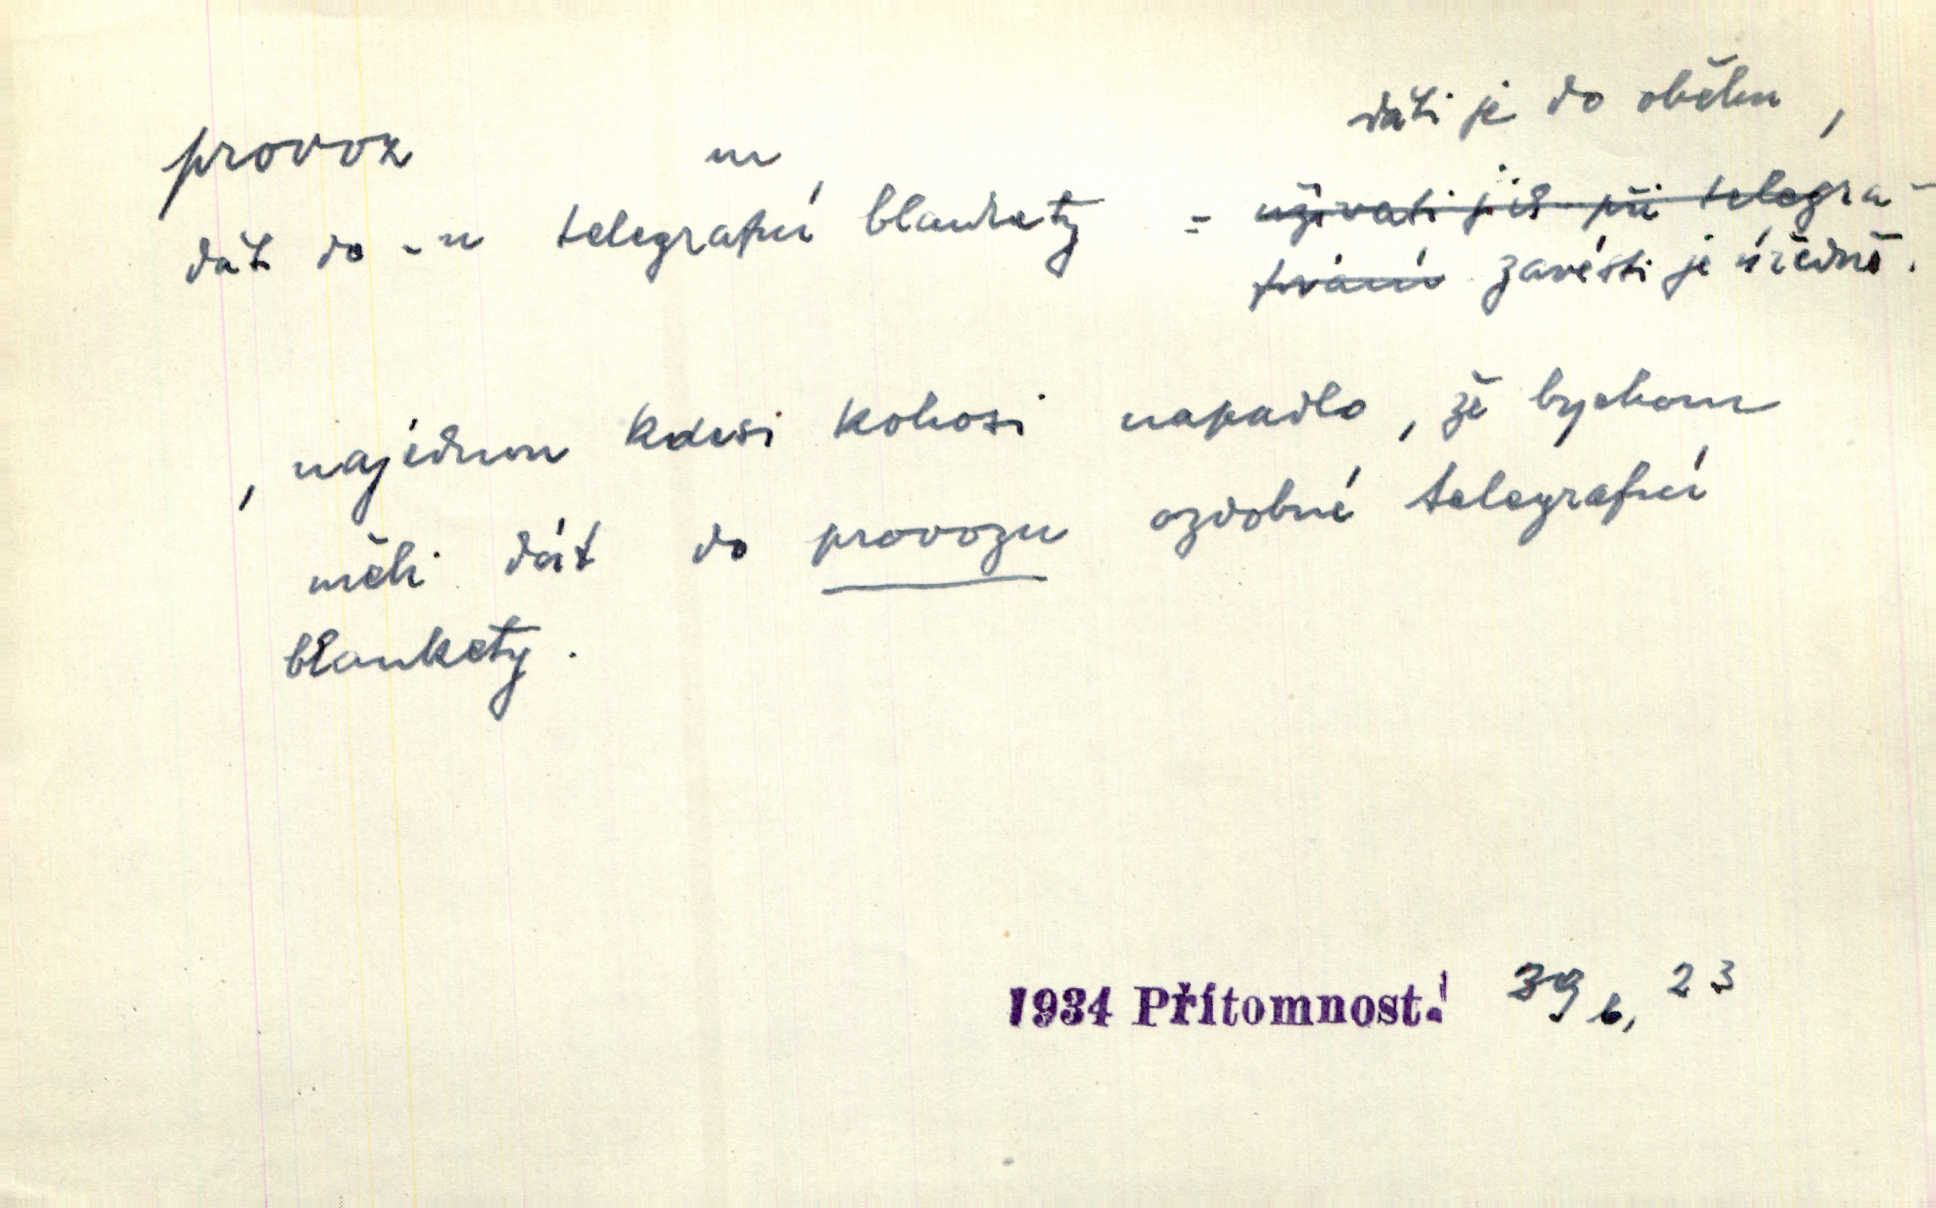 provoz m
dáti je do oběhu,
dát do -u telegrafní blankety = užívati jich při telegra-
fování zavésti je úředně.
, najednou kdesi kohosi napadlo, že bychom
měli dát do provozu ozdobné telegrafní
blankety.
1934 Přítomnost. 39 b, 23